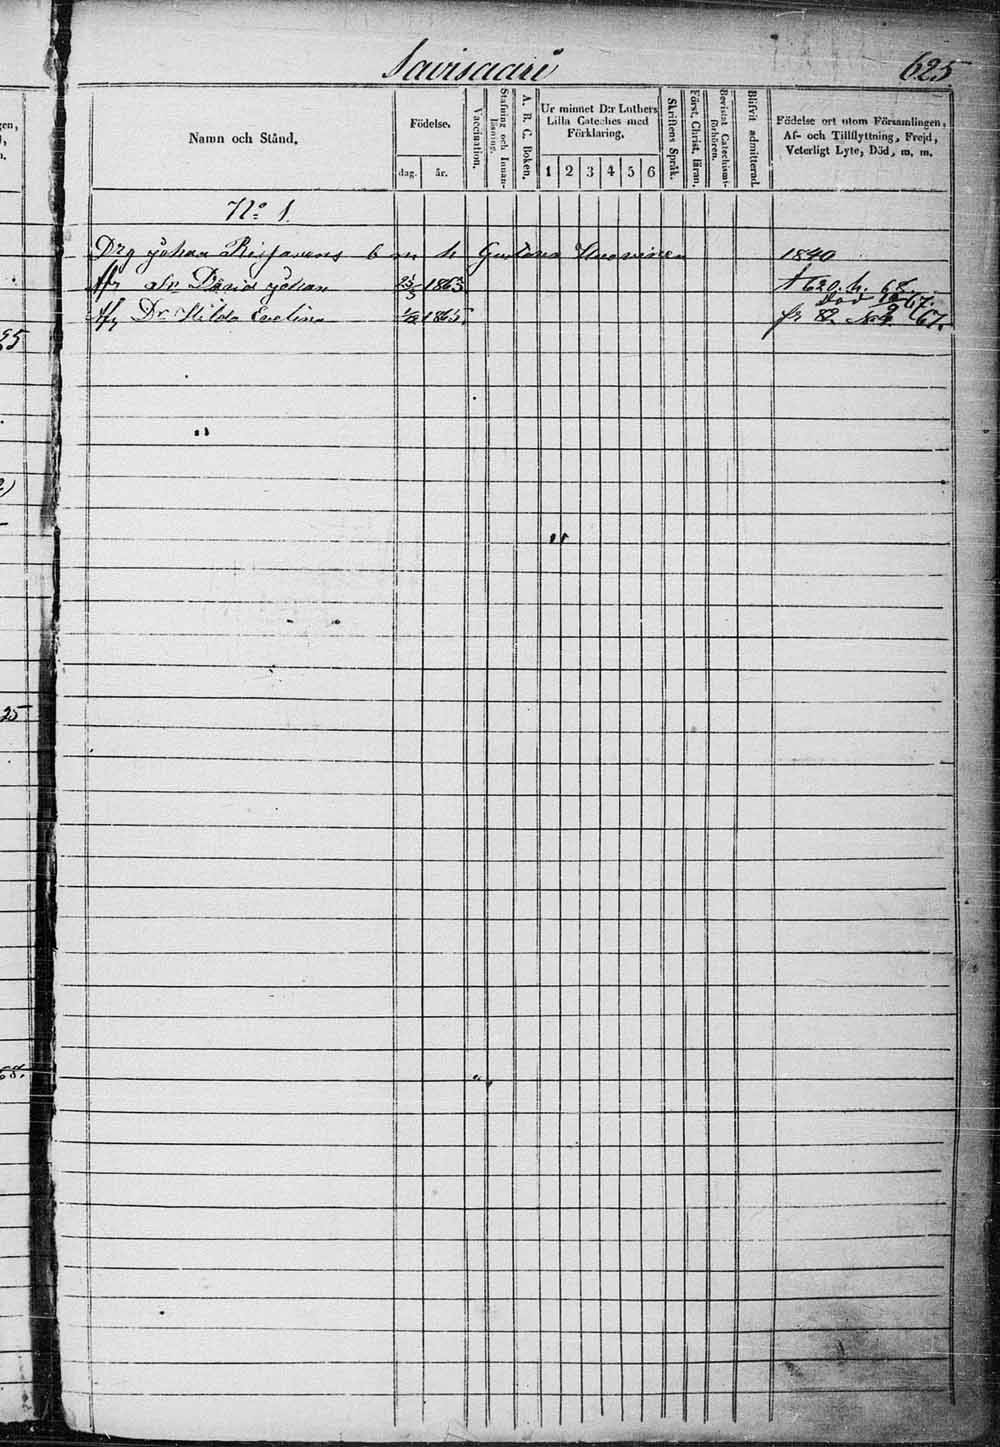 Savisaari
625
Namn och Stånd.
Födelse.
dag. år.
Vaccination.
Stafning och Innanläsning.
A. B. C. Boken.
Ur minnet D:r Luthers
Lilla Cateches med
Förklaring.
1 2 3 4 5 6
Skriftens Språk.
Först. Christ. läran.
Bevistat Catechismiförhören.
Blifvit admitterad.
Födelse ort utom Församlingen,
Af- och Tillflyttning, Frejd,
Veterligt Lyte, Död, m. m.
No 1
Drg Johan b m h Gustava 1840
sn David Johan 1863 620. h. 68.
död 67.
Dr Hilda Evelina 1865 fr 67.
25